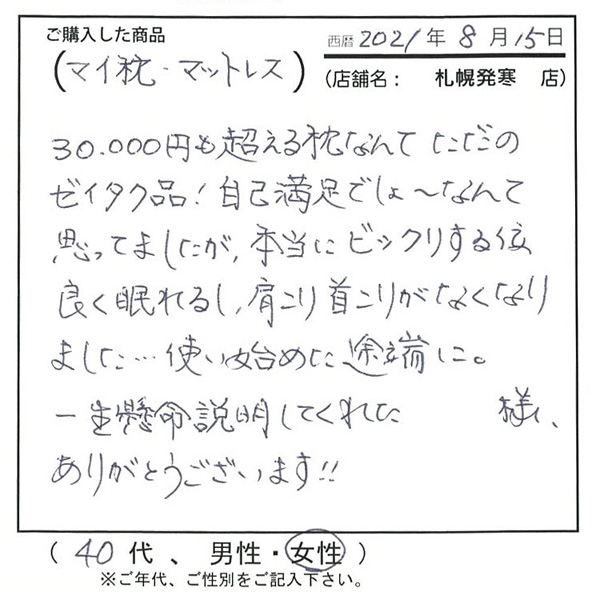 ご購入した商品
西暦 2021 年 8 月 15 日
(マイ枕・マットレス)
(店舗名: 札幌発寒 店)
30.000円も超える枕なんて ただの
ゼイタク品! 自己満足でしょ〜なんて
思ってましたが、本当に ビックリする位
良く眠れるし、肩こり 首こりがなくなり
ました… 使い始めた 途端に。
一生懸命説明してくれた 様、
ありがとうございます!!
( 40 代 、 男性・女性 )
※ご年代、ご性別をご記入下さい。